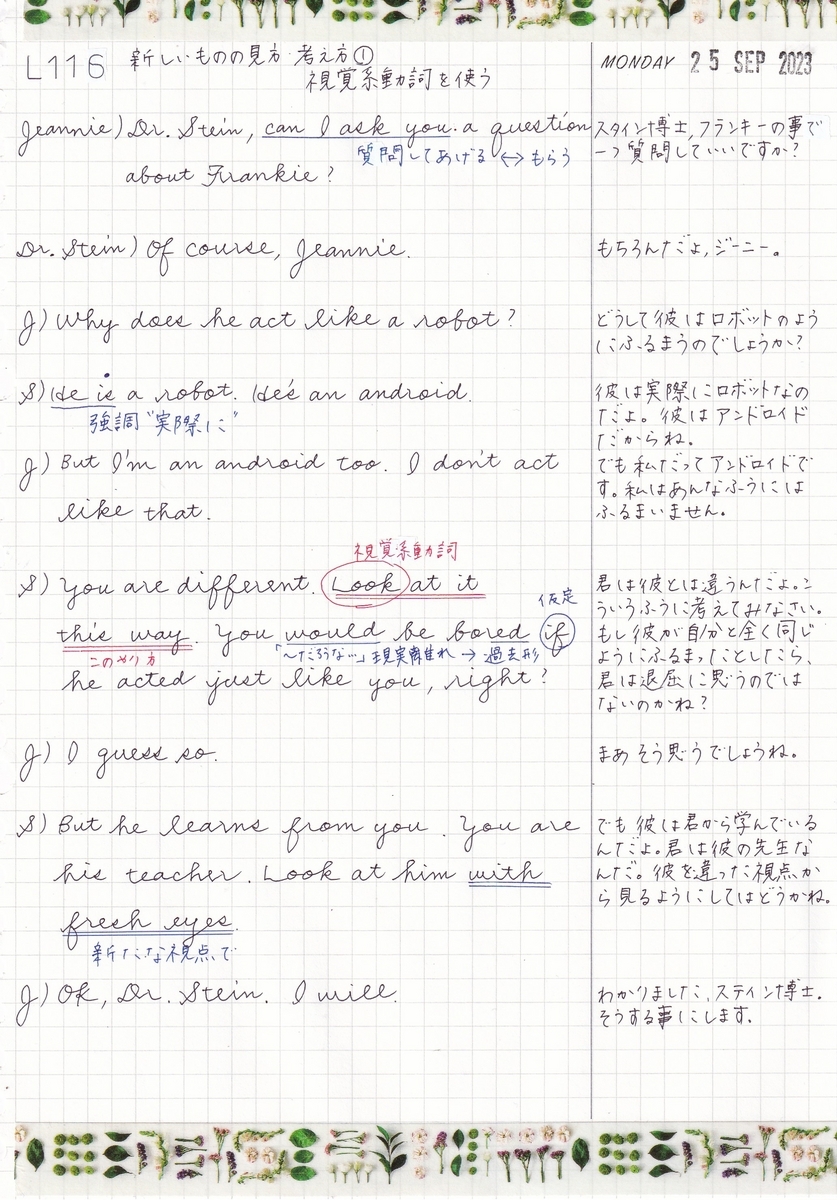 L116 新しいものの見方・考え方①
視覚系動詞を使う
MONDAY 25 SEP 2023
Jeannie) Dr. Stein, can I ask you a question
質問してあげる ↔ もらう
about Frankie?
スタイン博士, フランキーの事で
一つ質問していいですか?
Dr. Stein) Of course, Jeannie.
もちろんだよ, ジーニー。
J) Why does he act like a robot?
どうして彼はロボットのよう
にふるまうのでしょうか?
S) He is a robot. He's an android.
強調 "実際に"
彼は実際にロボットなの
だよ。彼はアンドロイド
だからね。
J) But I'm an android too. I don't act
like that.
でも私だってアンドロイドで
す。私はあんなふうには
ふるまいません。
視覚系動詞
S) You are different. Look at it
仮定
this way. You would be bored if
このやり方
「~だろうな…」現実離れ → 過去形
he acted just like you, right?
君は彼とは違うんだよ。こ
ういうふうに考えてみなさい。
もし彼が自分と全く同じ
ようにふるまったとしたら、
君は退屈に思うのでは
ないのかね?
J) I guess so.
まあそう思うでしょうね。
S) But he learns from you. You are
his teacher. Look at him with
fresh eyes.
新たな視点で
でも彼は君から学んでいる
んだよ。君は彼の先生な
んだ。彼を違った視点か
ら見るようにしてはどうかね。
J) Ok, Dr. Stein. I will.
わかりました、スティン博士.
そうする事にします.